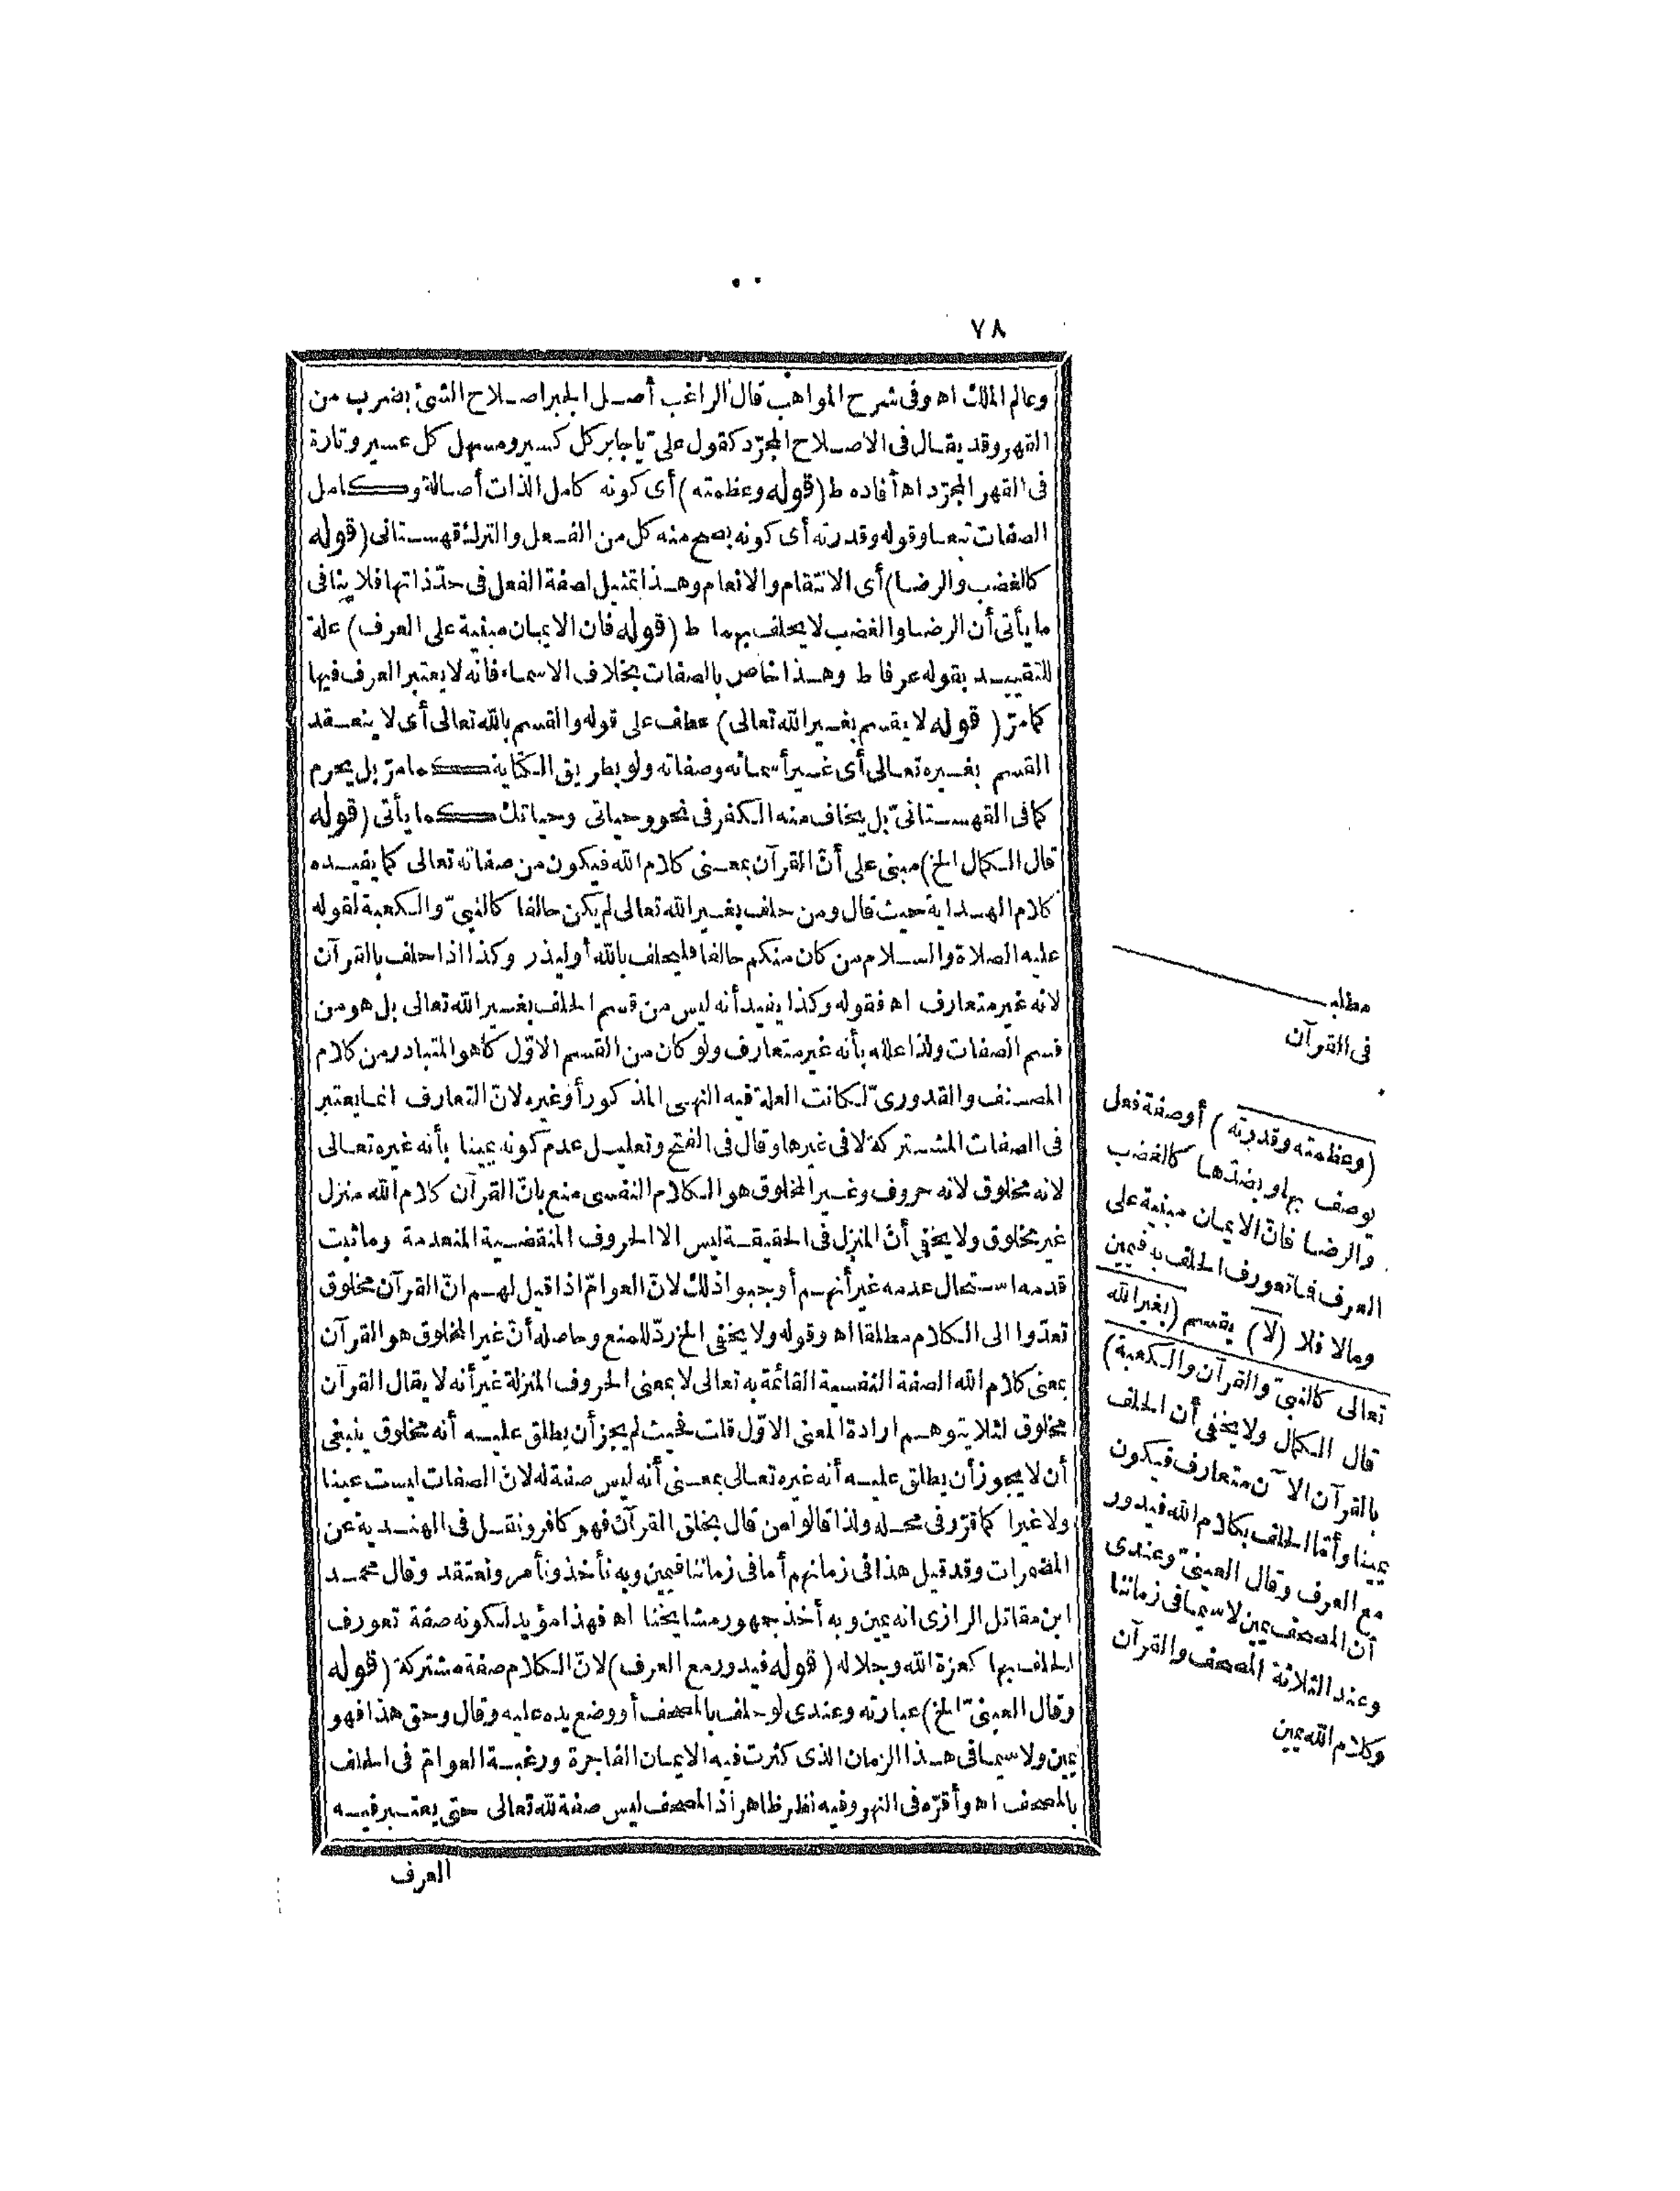 ٧٨
وعالم الملك اه وفى شرح المواهب قال الراغب أصل الجبر اصلاح الشئ بضرب من
القهر وقد يقال فى الاصلاح المجرّد كقول علىّ يا جابر كل كسير ومسهل كل عسير وتارة
فى القهر المجرّد اه أفاده ط (قوله وعظمته) أى كونه كامل الذات أصالة وكامل
الصفات تبعا وقوله وقدرته أى كونه يصح منه كل من الفعل والترك قهستانى (قوله
كالغضب والرضا) أى الانتقام والانعام وهذا تمثيل لصفة الفعل فى حدّ ذاتها فلا ينافى
ما يأتى أن الرضا والغضب لا يحلف بهما ط (قوله فان الايمان مبنية على العرف) علة
للتقييد بقوله عرفا ط وهذا خاص بالصفات بخلاف الاسماء فانه لا يعتبر العرف فيها
كما مرّ (قوله لا يقسم بغير الله تعالى) عطف على قوله والقسم بالله تعالى أى لا ينعقد
القسم بغيره تعالى أى غير أسمائه وصفاته ولو بطريق الكناية كما مرّ بل يحرم
كما فى القهستانىّ بل يخاف منه الكفر فى نحو وحياتى وحياتك كما يأتى (قوله
قال الكمال الخ) مبنى على أنّ القرآن بمعنى كلام الله فيكون من صفاته تعالى كما يفيده
كلام الهداية حيث قال ومن حلف بغير الله تعالى لم يكن حالفا كالنبىّ والكعبة لقوله
عليه الصلاة والسلام من كان منكم حالفا فليحلف بالله أو ليذر وكذا اذا حلف بالقرآن
لانه غير متعارف اه فقوله وكذا يفيد أنه ليس من قسم الحلف بغير الله تعالى بل هو من
قسم الصفات ولذا علله بأنه غير متعارف ولو كان من القسم الاوّل كما هو المتبادر من كلام
المصنف والقدورىّ لكانت العلة فيه النهى المذكور أو غيره لانّ التعارف انما يعتبر
فى الصفات المشتركة لا فى غيرها وقال فى الفتح وتعليل عدم كونه يمينا بأنه غيره تعالى
لانه مخلوق لانه حروف وغير المخلوق هو الكلام النفسى منع بانّ القرآن كلام الله منزل
غير مخلوق ولا يخفى أنّ المنزل فى الحقيقة ليس الا الحروف المنقضية المنعدمة وما ثبت
قدمه استحال عدمه غير أنهم أوجبوا ذلك لانّ العوامّ اذا قيل لهم انّ القرآن مخلوق
تعدّوا الى الكلام مطلقا اه وقوله ولا يخفى الخ ردّ للمنع وحاصله أنّ غير المخلوق هو القرآن
بمعنى كلام الله الصفة النفسية القائمة به تعالى لا بمعنى الحروف المنزلة غير أنه لا يقال القرآن
مخلوق لئلا يتوهم ارادة المعنى الاوّل قلت فحيث لم يجز أن يطلق عليه أنه مخلوق ينبغى
أن لا يجوز أن يطلق عليه أنه غيره تعالى بمعنى أنه ليس صفة له لانّ الصفات ليست عينا
ولا غيرا كما قرّر فى محله ولذا قالوا من قال بخلق القرآن فهو كافر ونقل فى الهندية عن
المضمرات وقد قيل هذا فى زمانهم أما فى زماننا فيمين وبه نأخذ ونأمر ونعتقد وقال محمد
ابن مقاتل الرازى انه يمين وبه أخذ جمهور مشايخنا اه فهذا مؤيد لكونه صفة تعورف
الحلف بها كعزة الله وجلاله (قوله فيدور مع العرف) لانّ الكلام صفة مشتركة (قوله
وقال العينىّ الخ) عبارته وعندى لو حلف بالمصحف أو وضع يده عليه وقال وحق هذا فهو
يمين ولا سيما فى هذا الزمان الذى كثرت فيه الايمان الفاجرة ورغبة العوامّ فى الحلف
بالمصحف اه وأقرّه فى النهر وفيه نظر ظاهر اذ المصحف ليس صفة لله تعالى حتى يعتبر فيه
العرف
مطلب
فى القرآن
(وعظمته وقدرته) أو صفة فعل
يوصف بها وبضدّها كالغضب
والرضا فانّ الايمان مبنية على
العرف فما تعورف الحلف به فيمين
وما لا فلا (لا) يقسم (بغير الله
تعالى كالنبىّ والقرآن والكعبة)
قال الكمال ولا يخفى أن الحلف
بالقرآن الآن متعارف فيكون
يمينا وأمّا الحلف بكلام الله فيدور
مع العرف وقال العينىّ وعندى
أن المصحف يمين لا سيما فى زماننا
وعند الثلاثة المصحف والقرآن
وكلام الله يمين